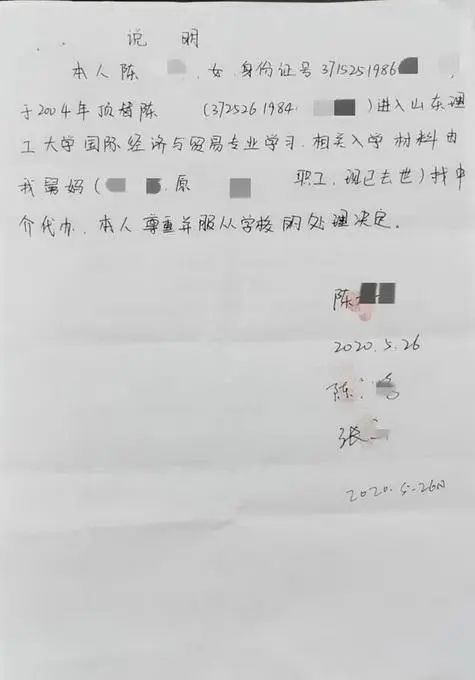 说 明
本人陈 ,女,身份证号 3715251986 ,
于2004年顶替陈 (372526 1984 )进入山东理
工大学国际经济与贸易专业学习,相关入学材料由
我舅妈( ,原 职工,现已去世)找中
介代办,本人尊重并服从学校的处理决定。
陈
2020.5.26
陈
张
2020.5.26日